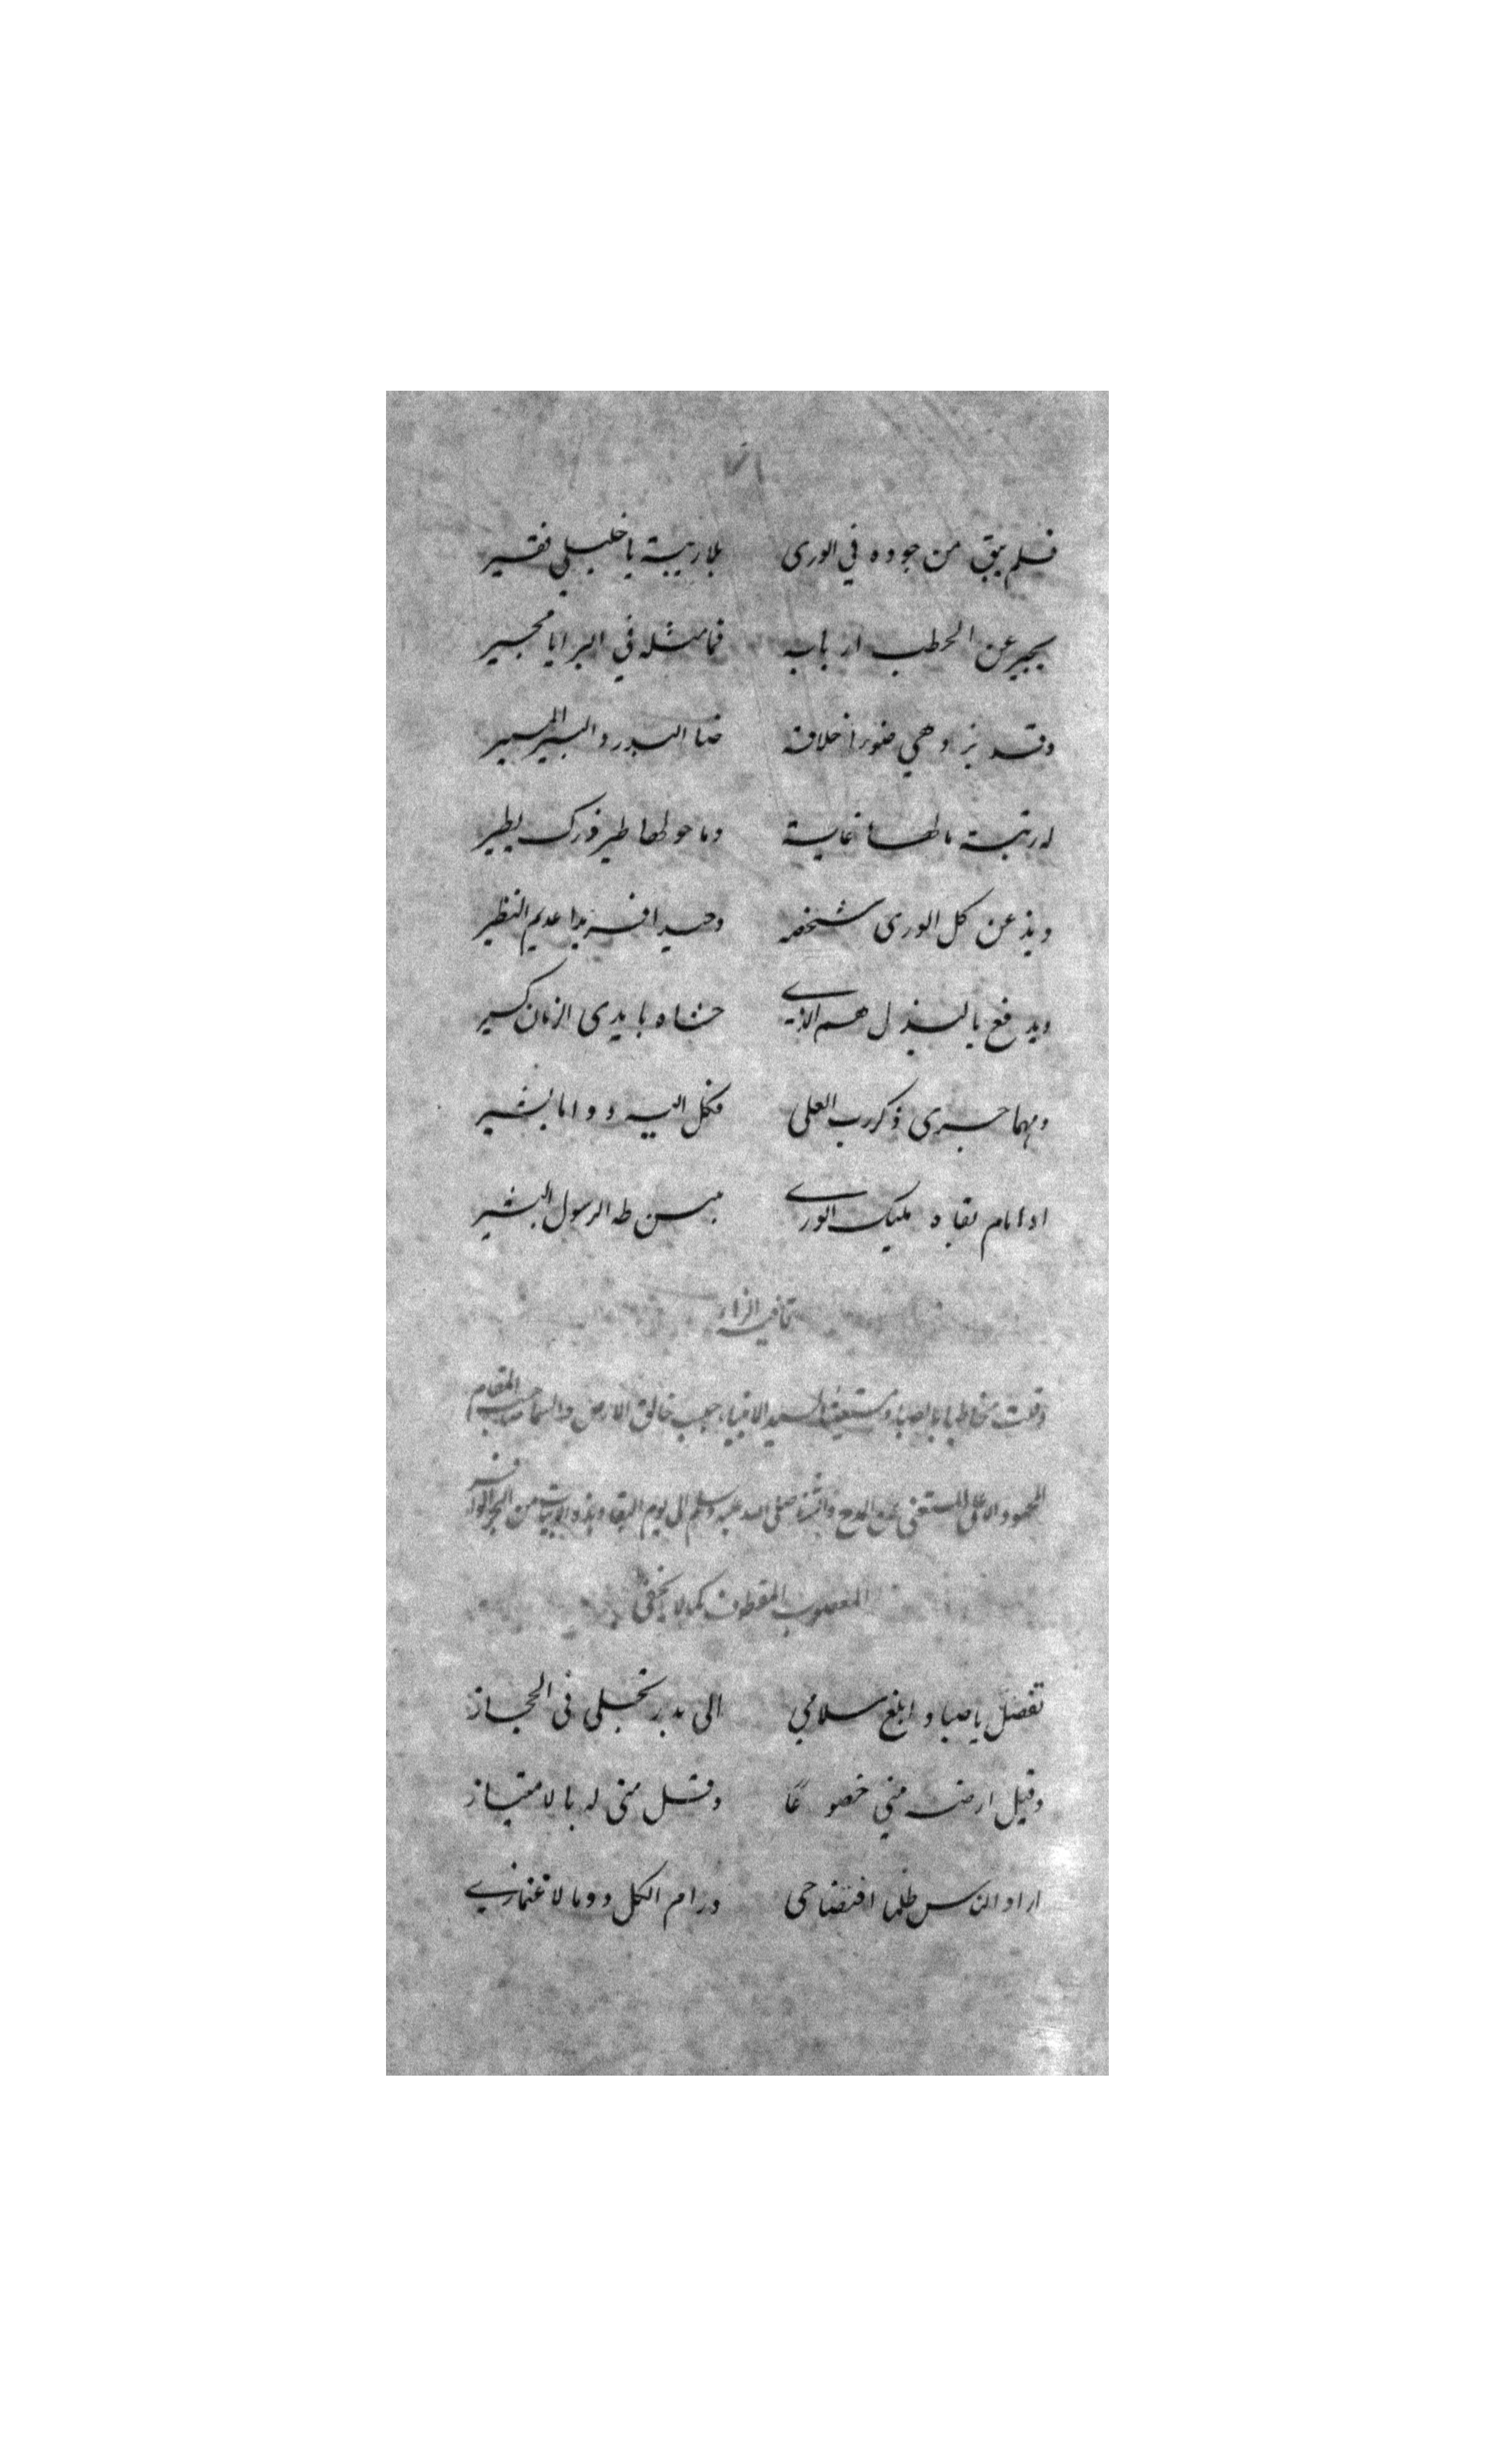 فلم يبق من جوده في الورى بلا ريبة يا خليلي فقير
يجير عن الخطب اربابه فما مثله في البرايا مجير
وقد يزدهي ضوء اخلاقه ضيا البدور و المنير
له رتبة ما لها غاية وما حولها طير فكرك يطير
ويذ عن كل الورى شخصه وحيدا فريدا عديم النظير
ويدفع بالبذل هم الاذي حشاه بايدي الزمان كسير
ومهما جرى ذكر رب العلى فكل اليه دواما يشير
ادامام بقاه مليك الوري بيمن طه الرسول البشير
قافية الزاء
وقلت مخاطبا بالصبا ومستغيثا لسيد الانبياء حبيب خالق الارض والسما صاحب المقام
المحمود الاعلى المستغنى عن المدح والثنا صلى الله عليه وسلم الى يوم البقا وهذه الابيات من البحر الوافر
المعصوب المقطوف كما لا يخفى
تفضل يا صبا وابلغ سلامي الى بدر تجلى في الحجاز
وقبل ارضه مني خضوعا وقل منى له بالامتياز
اراد الناس ظلما افتضاحى ورام الكل دوما لاغتمازي